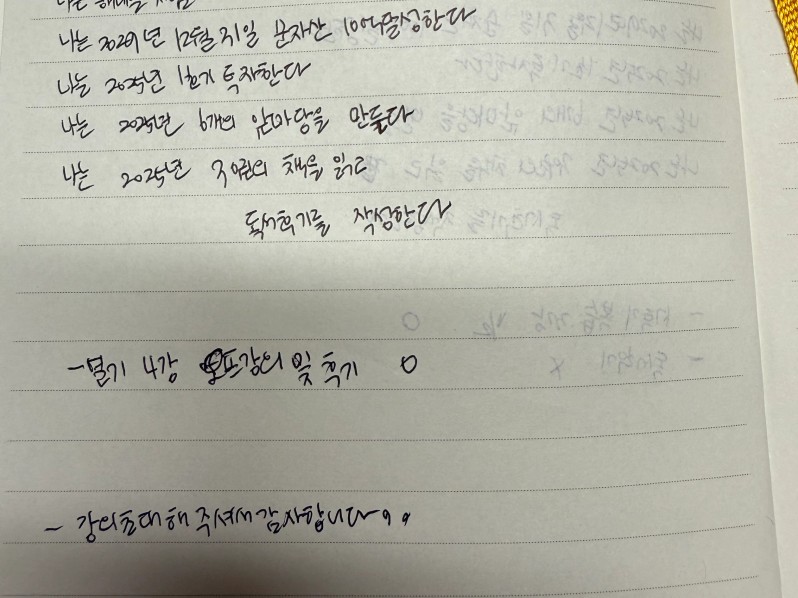 나는 해내는 사람
나는 2029년 12월 31일 순자산 10억 달성한다
나는 2025년 1호기 투자한다
나는 2025년 6개의 앞마당을 만들다
나는 2025년 30권의 책을 읽고
독서후기를 작성한다
-열기 4강 오프강의 및 후기 O
- 강의초대해주셔서 감사합니다..